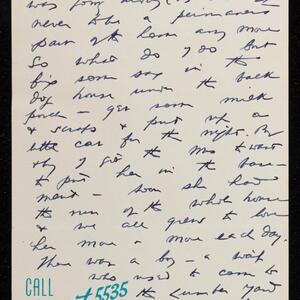 was going away (
never be a permanent
part of the home any more
So what do I do but
fix some say in the back
dog house under the back
porch — get some milk
& scraps & put up a
little car for the night. By
& by I got the ms to want
to put her in the base-
ment — soon she had
the run of the whole house
& we all grew to love
her more & more each day.
There was a boy — a waif
who used to come to
the lumber yard
CALL
#5535